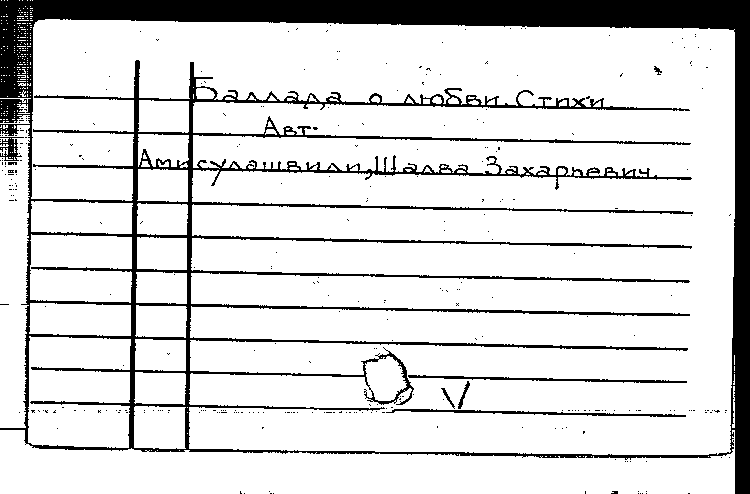 Баллада о любви. Стихи.
Авт.
Амисулашвили, Шалва Захарьевич.
V